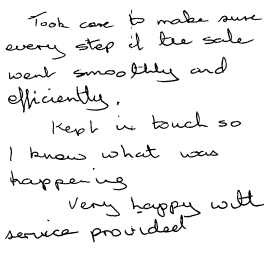 Took care to make sure
every step of the sale
went smoothly and
efficiently.
Kept in touch so
I knew what was
happening
Very happy with
service provided